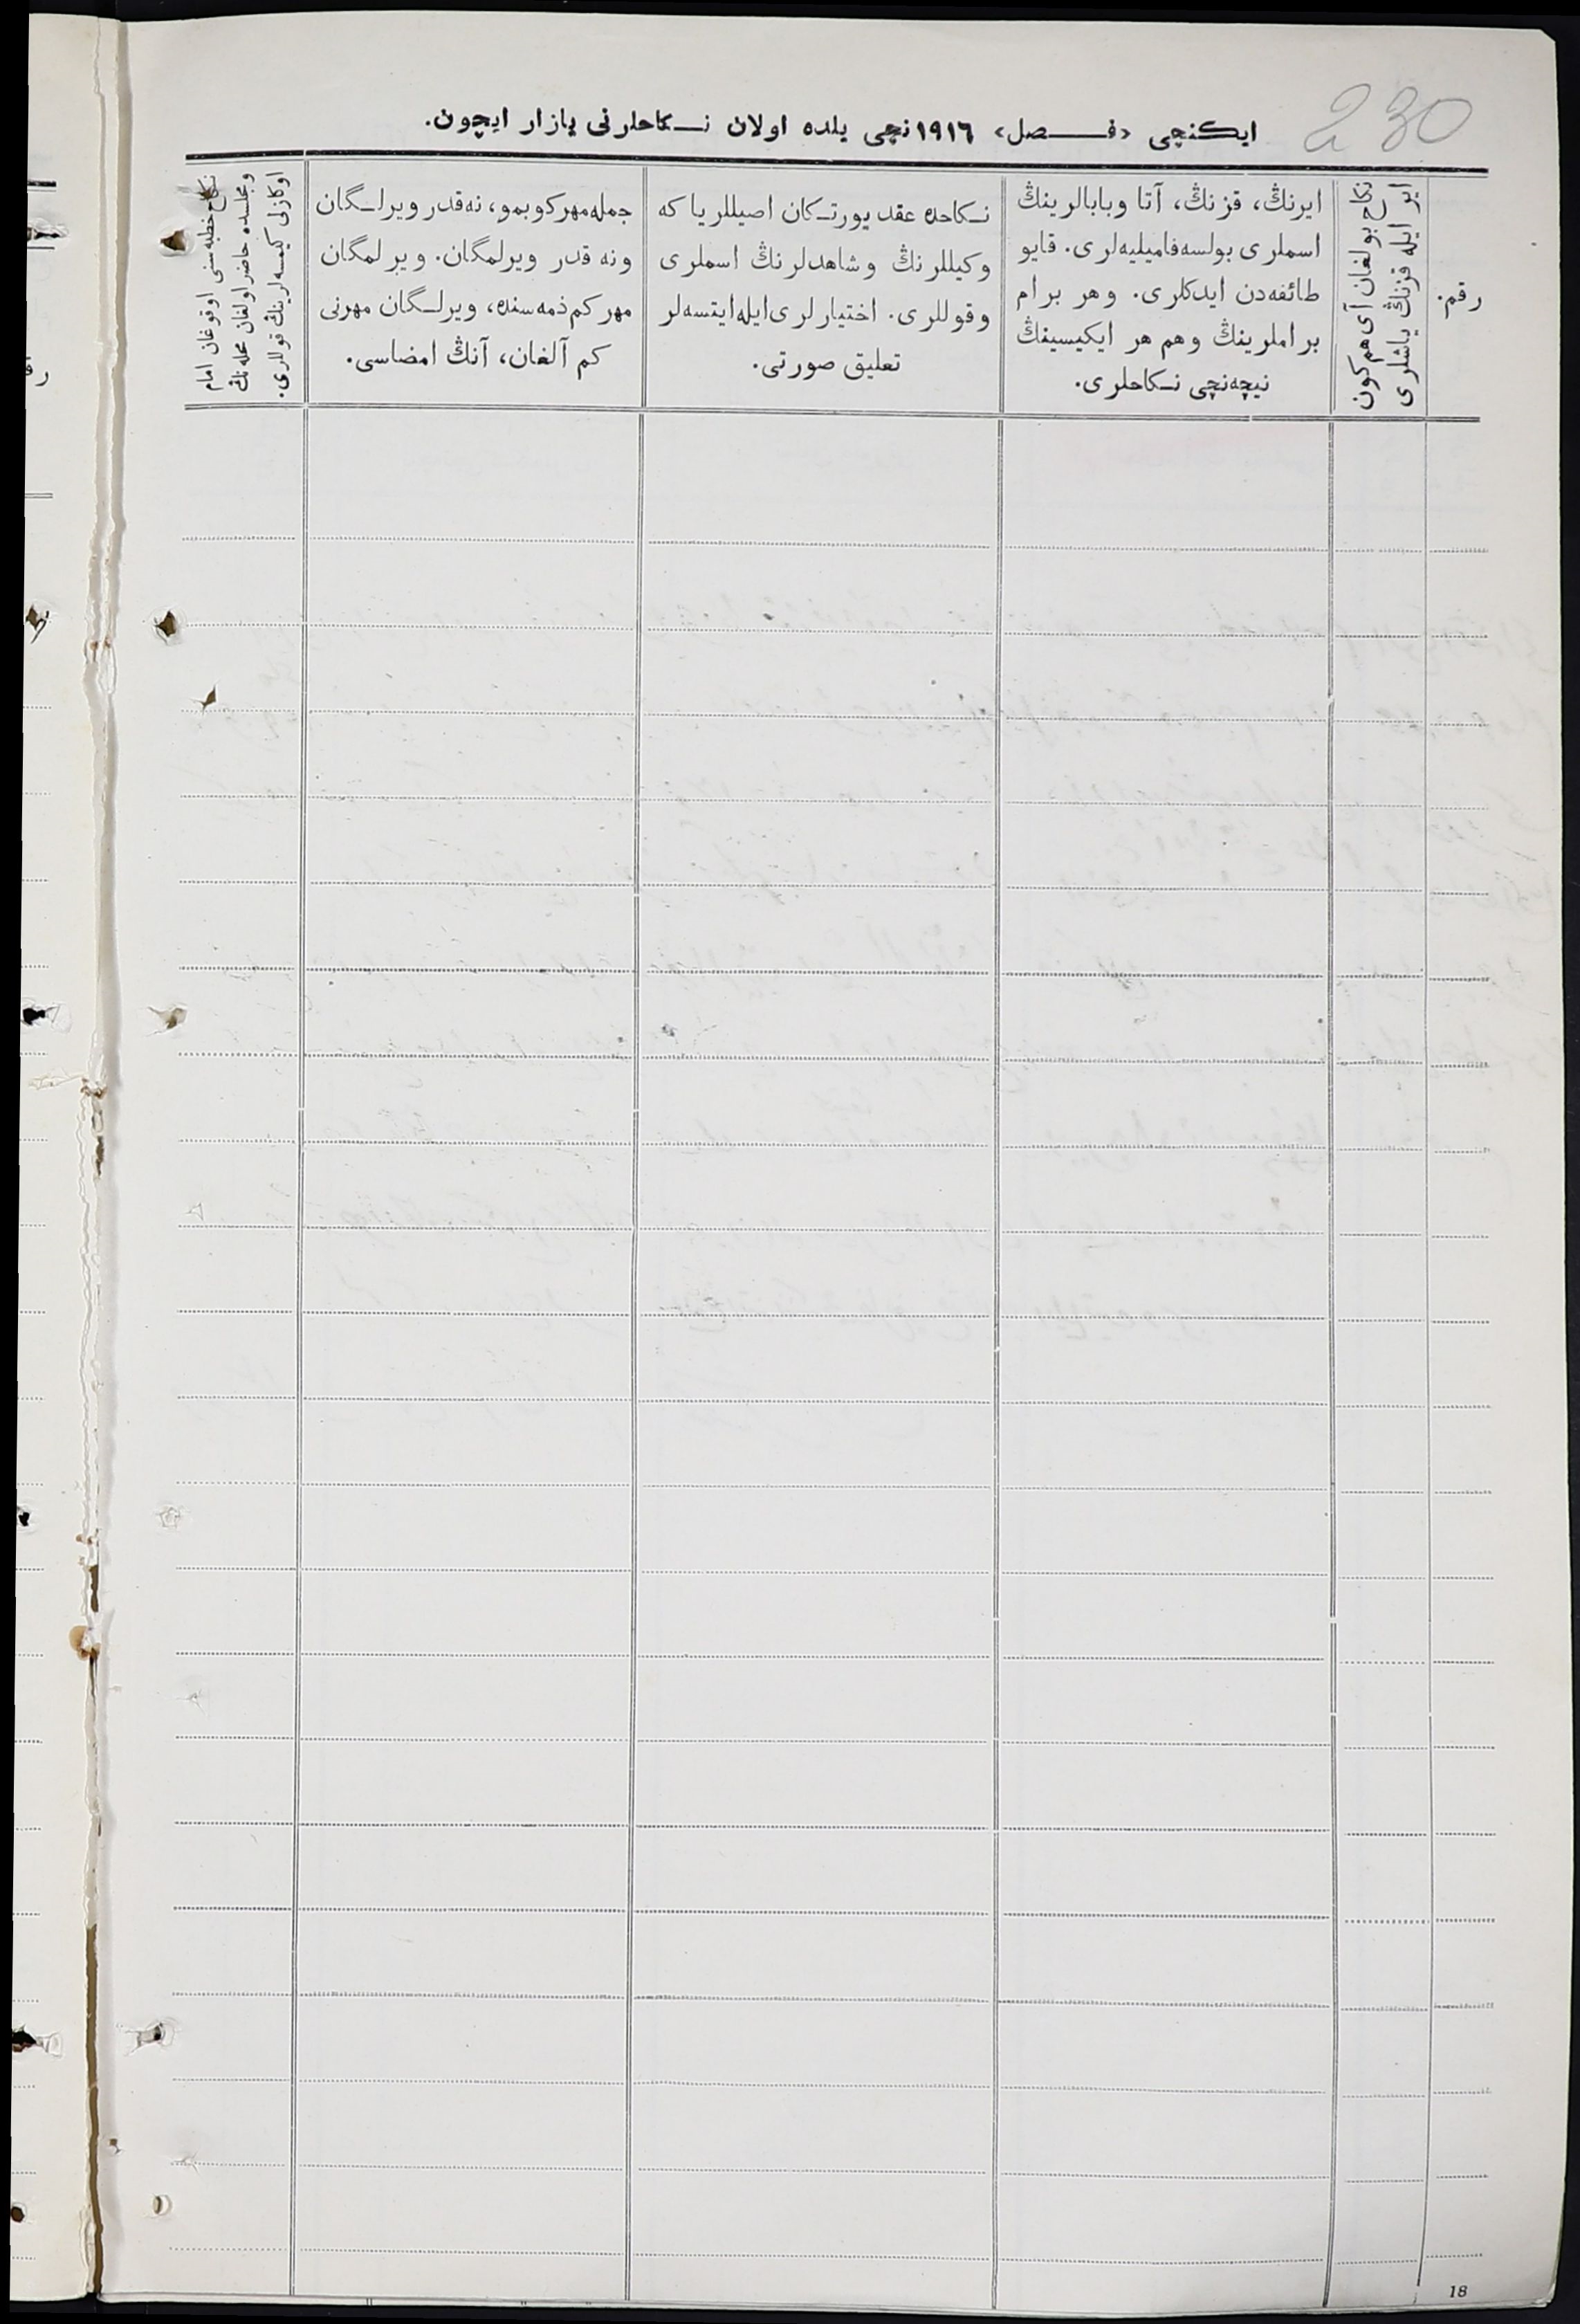 230
ايكنچى «فـــصل» ١٩١٦نچى يلده اولان نـكاحلرنى يازار ايچون.
رقم.
نكاح بولغان آى هم كون
اير ايله قزنڭ ياشلرى
ايرنڭ، قزنڭ، آتا وبابالرينڭ
اسملرى بولسه فاميليه‌لرى. قايو
طائفه‌دن ايدكلرى. وهر برام
براملرينڭ وهم هر ايكيسينڭ
نيچه‌نچى نـكاحلرى.
نـكاحده عقد يورتـكان اصيللر ياكه
وكيللرنڭ وشاهدلرنڭ اسملرى
وقوللرى. اختيارلرى ايله ايتسه‌لر
تعليق صورتى.
جمله مهركوبمو، نه‌قدر ويرلـگان
ونه قدر ويرلمگان. ويرلمگان
مهر كم ذمه‌سنده، ويرلـگان مهرنى
كم آلغان، آنڭ امضاسى.
نكاح خطبه‌سنى اوقوغان امام
ومجلسده حاضر اولغان محله‌نڭ
اوكازلى كيمسه‌لرينڭ قوللرى.
18